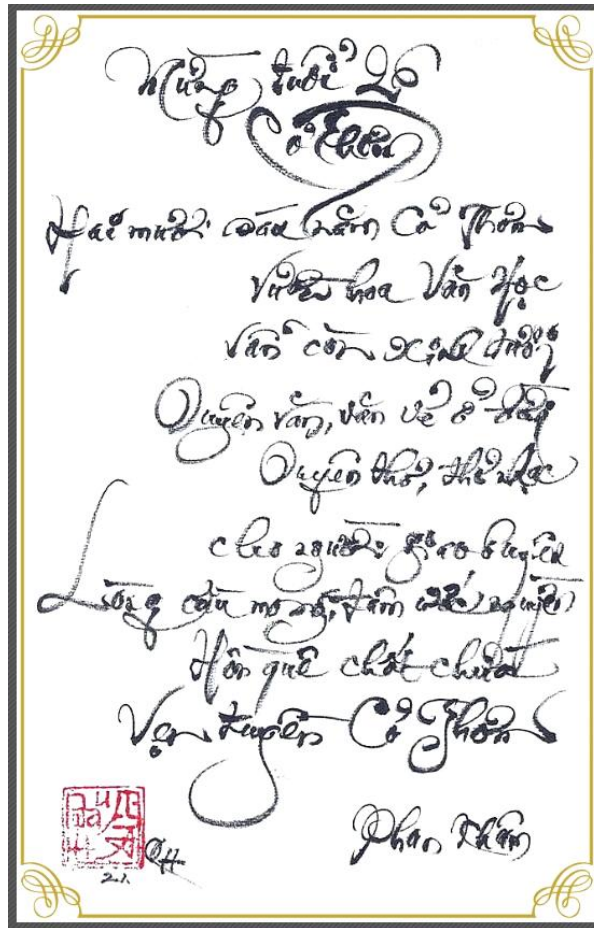 Mừng tuổi 26
Cỏ Thơm
Hai mươi sáu năm Cỏ Thơm
Vườn hoa Văn Học
Vẫn còn xinh tươi
Quyện văn, văn vẻ ở đây
Quyện thơ, thơ nhạc
cho người giao duyên
Lòng cầu mong, tâm ước nguyện
Hồn quê chất chứa
Vẹn tuyền Cỏ Thơm
Phan Khâm